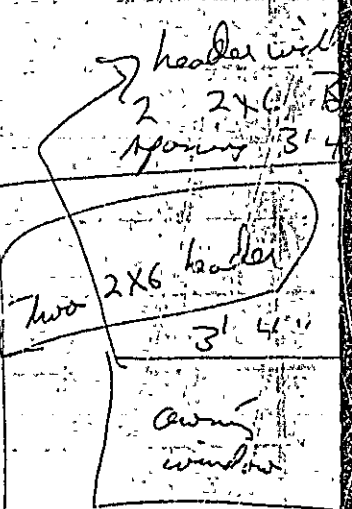 header will
2 2x6
spanning 3' 4
Two 2x6 header
3' 4"
awning
window